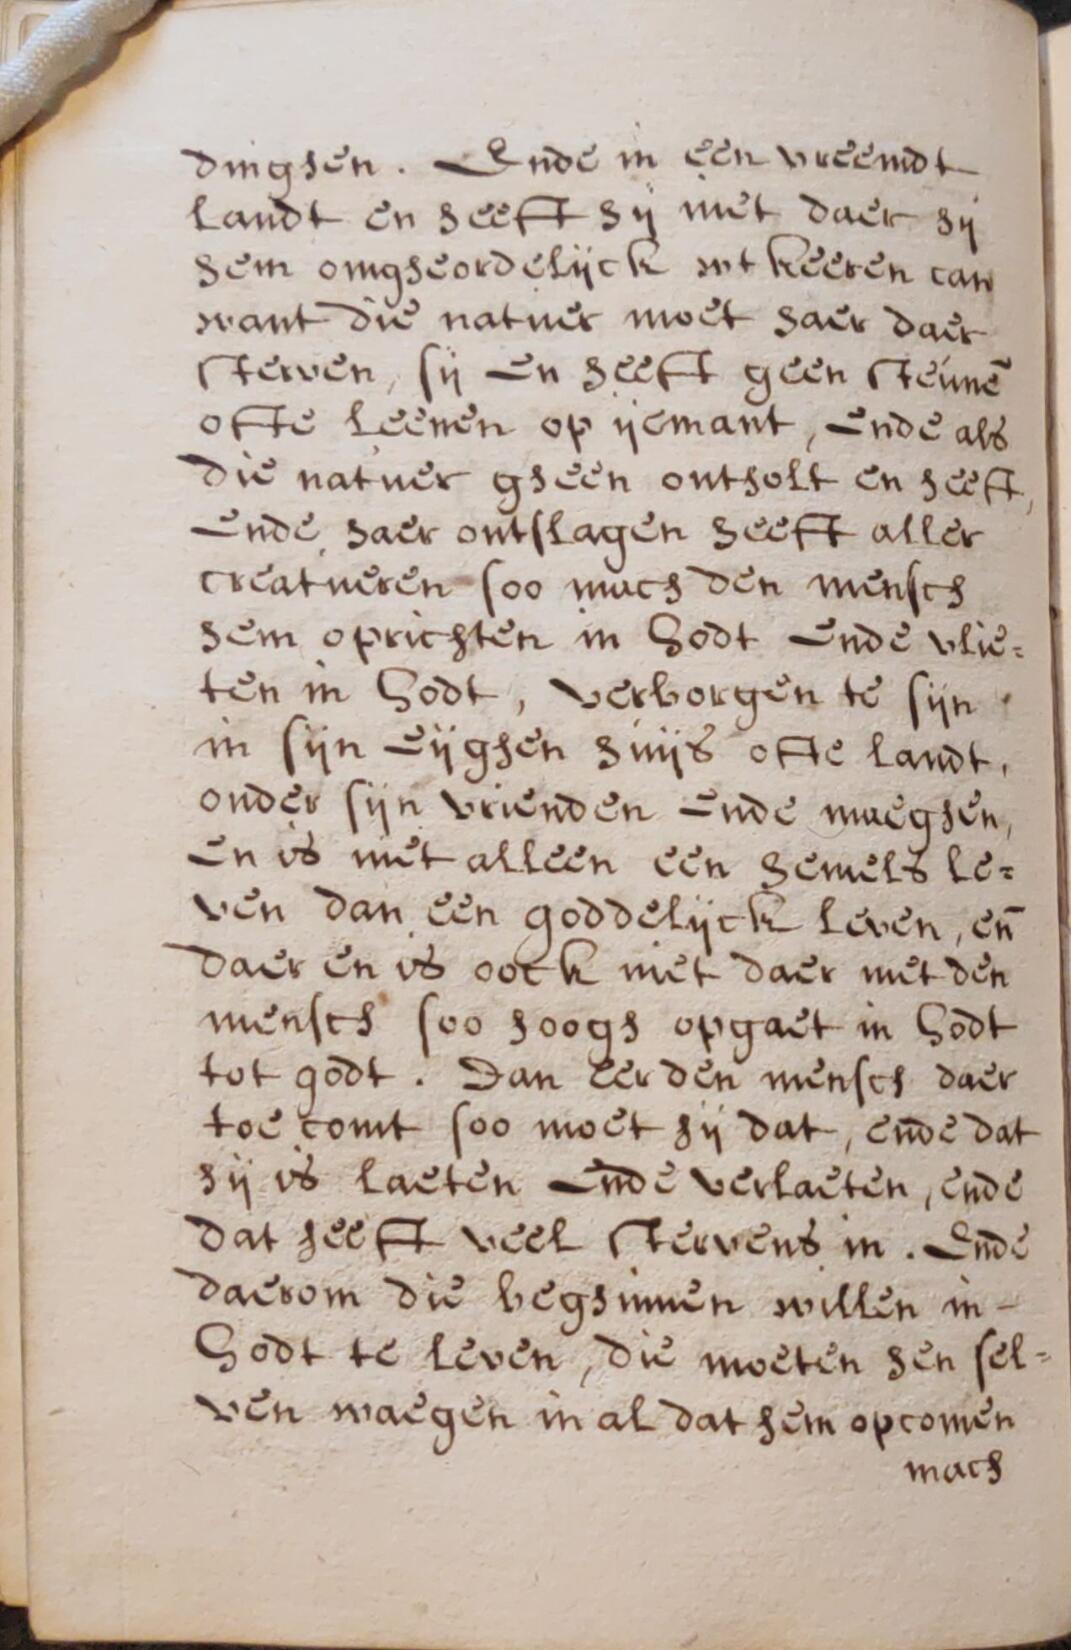 dinghen. Ende in een vreemdt
landt en heeft hij niet daer hij
hem omgheordelijck wt keeren can
want die natuer moet haer daer
sterven, sij en heeft geen steunē
ofte leenen op ijemant, ende als
die natuer gheen ontholt en heeft,
ende haer ontslagen heeft aller
creatueren soo mach den mensch
hem oprichten in Godt ende vlie=
ten in Godt, verborgen te sijn
in sijn eijghen huijs ofte landt,
onder sijn vrienden ende maeghen,
en is niet alleen een hemels le=
ven dan een goddelijck leven, en̄
daer en is oock niet daer met den
mensch soo hoogh opgaet in Godt
tot godt. Dan eer den mensch daer
toe comt soo moet hij dat, ende dat
hij is laeten ende verlaeten, ende
dat heeft veel stervens in. Ende
daerom die beghinnen willen in-
Godt te leven, die moeten hen sel=
ven waegen in al dat hem opcomen
mach